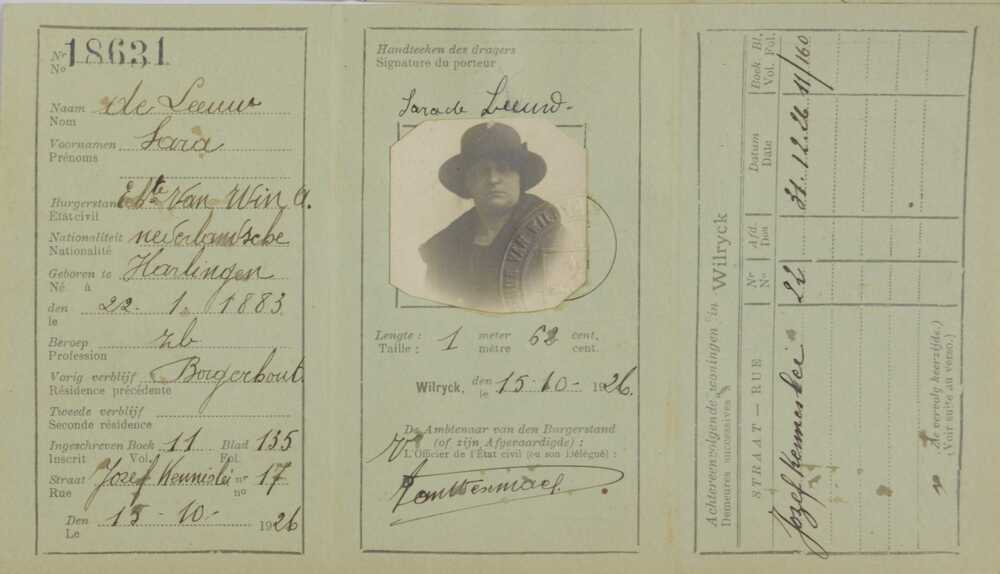 Nr 18631
No
Naam de Leeuw
Nom
Voornamen Sara
Prénoms
Burgerstand Ehte Van Win A.
Etat civil
Nationaliteit nederlandsche
Nationalité
Geboren te Harlingen
Né à
den 22. 1. 1883
le
Beroep zb
Profession
Vorig verblijf Borgerhout
Résidence précédente
Tweede verblijf
Seconde résidence
Ingeschreven Boek 11 Blad 135
Inscrit Vol. Fol.
Straat Jozef Kennislei nr 17
Rue no
Den 15-10- 1926
Le
Handteeken des dragers
Signature du porteur
Sara de Leeuw.
Lengte : 1 meter 62 cent,
Taille : mètre cent.
Wilryck, den 15-10- 1926.
le
De Ambtenaar van den Burgerstand
(of zijn Afgevaardigde) :
L'Officier de l'État civil (ou son Délégué) :
Achtereenvolgende woningen in Wilryck
Demeures successives à
STRAAT — RUE
Nr
No
Afd.
Dos
Datum
Date
Boek Bl.
Vol. Fol.
Jozef Kenneslei 22 31.12.26 11/160
De vervolg keerzijde.)
(Voir suite au verso.)